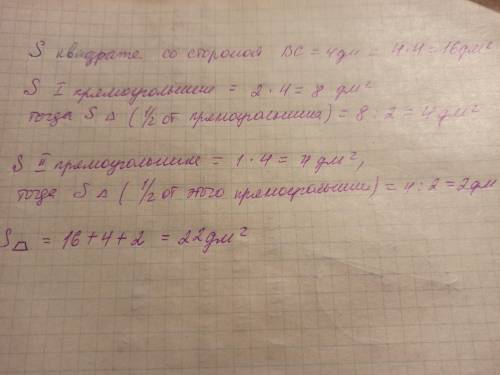 S квадрата со стороной BC = 4дм = 4·4 = 16дм²
S I прямоугольник = 2·4 = 8 дм²
тогда S △ (1/2 от прямоугольника) = 8 : 2 = 4дм²
S II прямоугольник = 1·4 = 4дм²,
тогда S △ (1/2 от этого прямоугольника) = 4 : 2 = 2дм
S⏢ = 16+4+2 = 22дм²